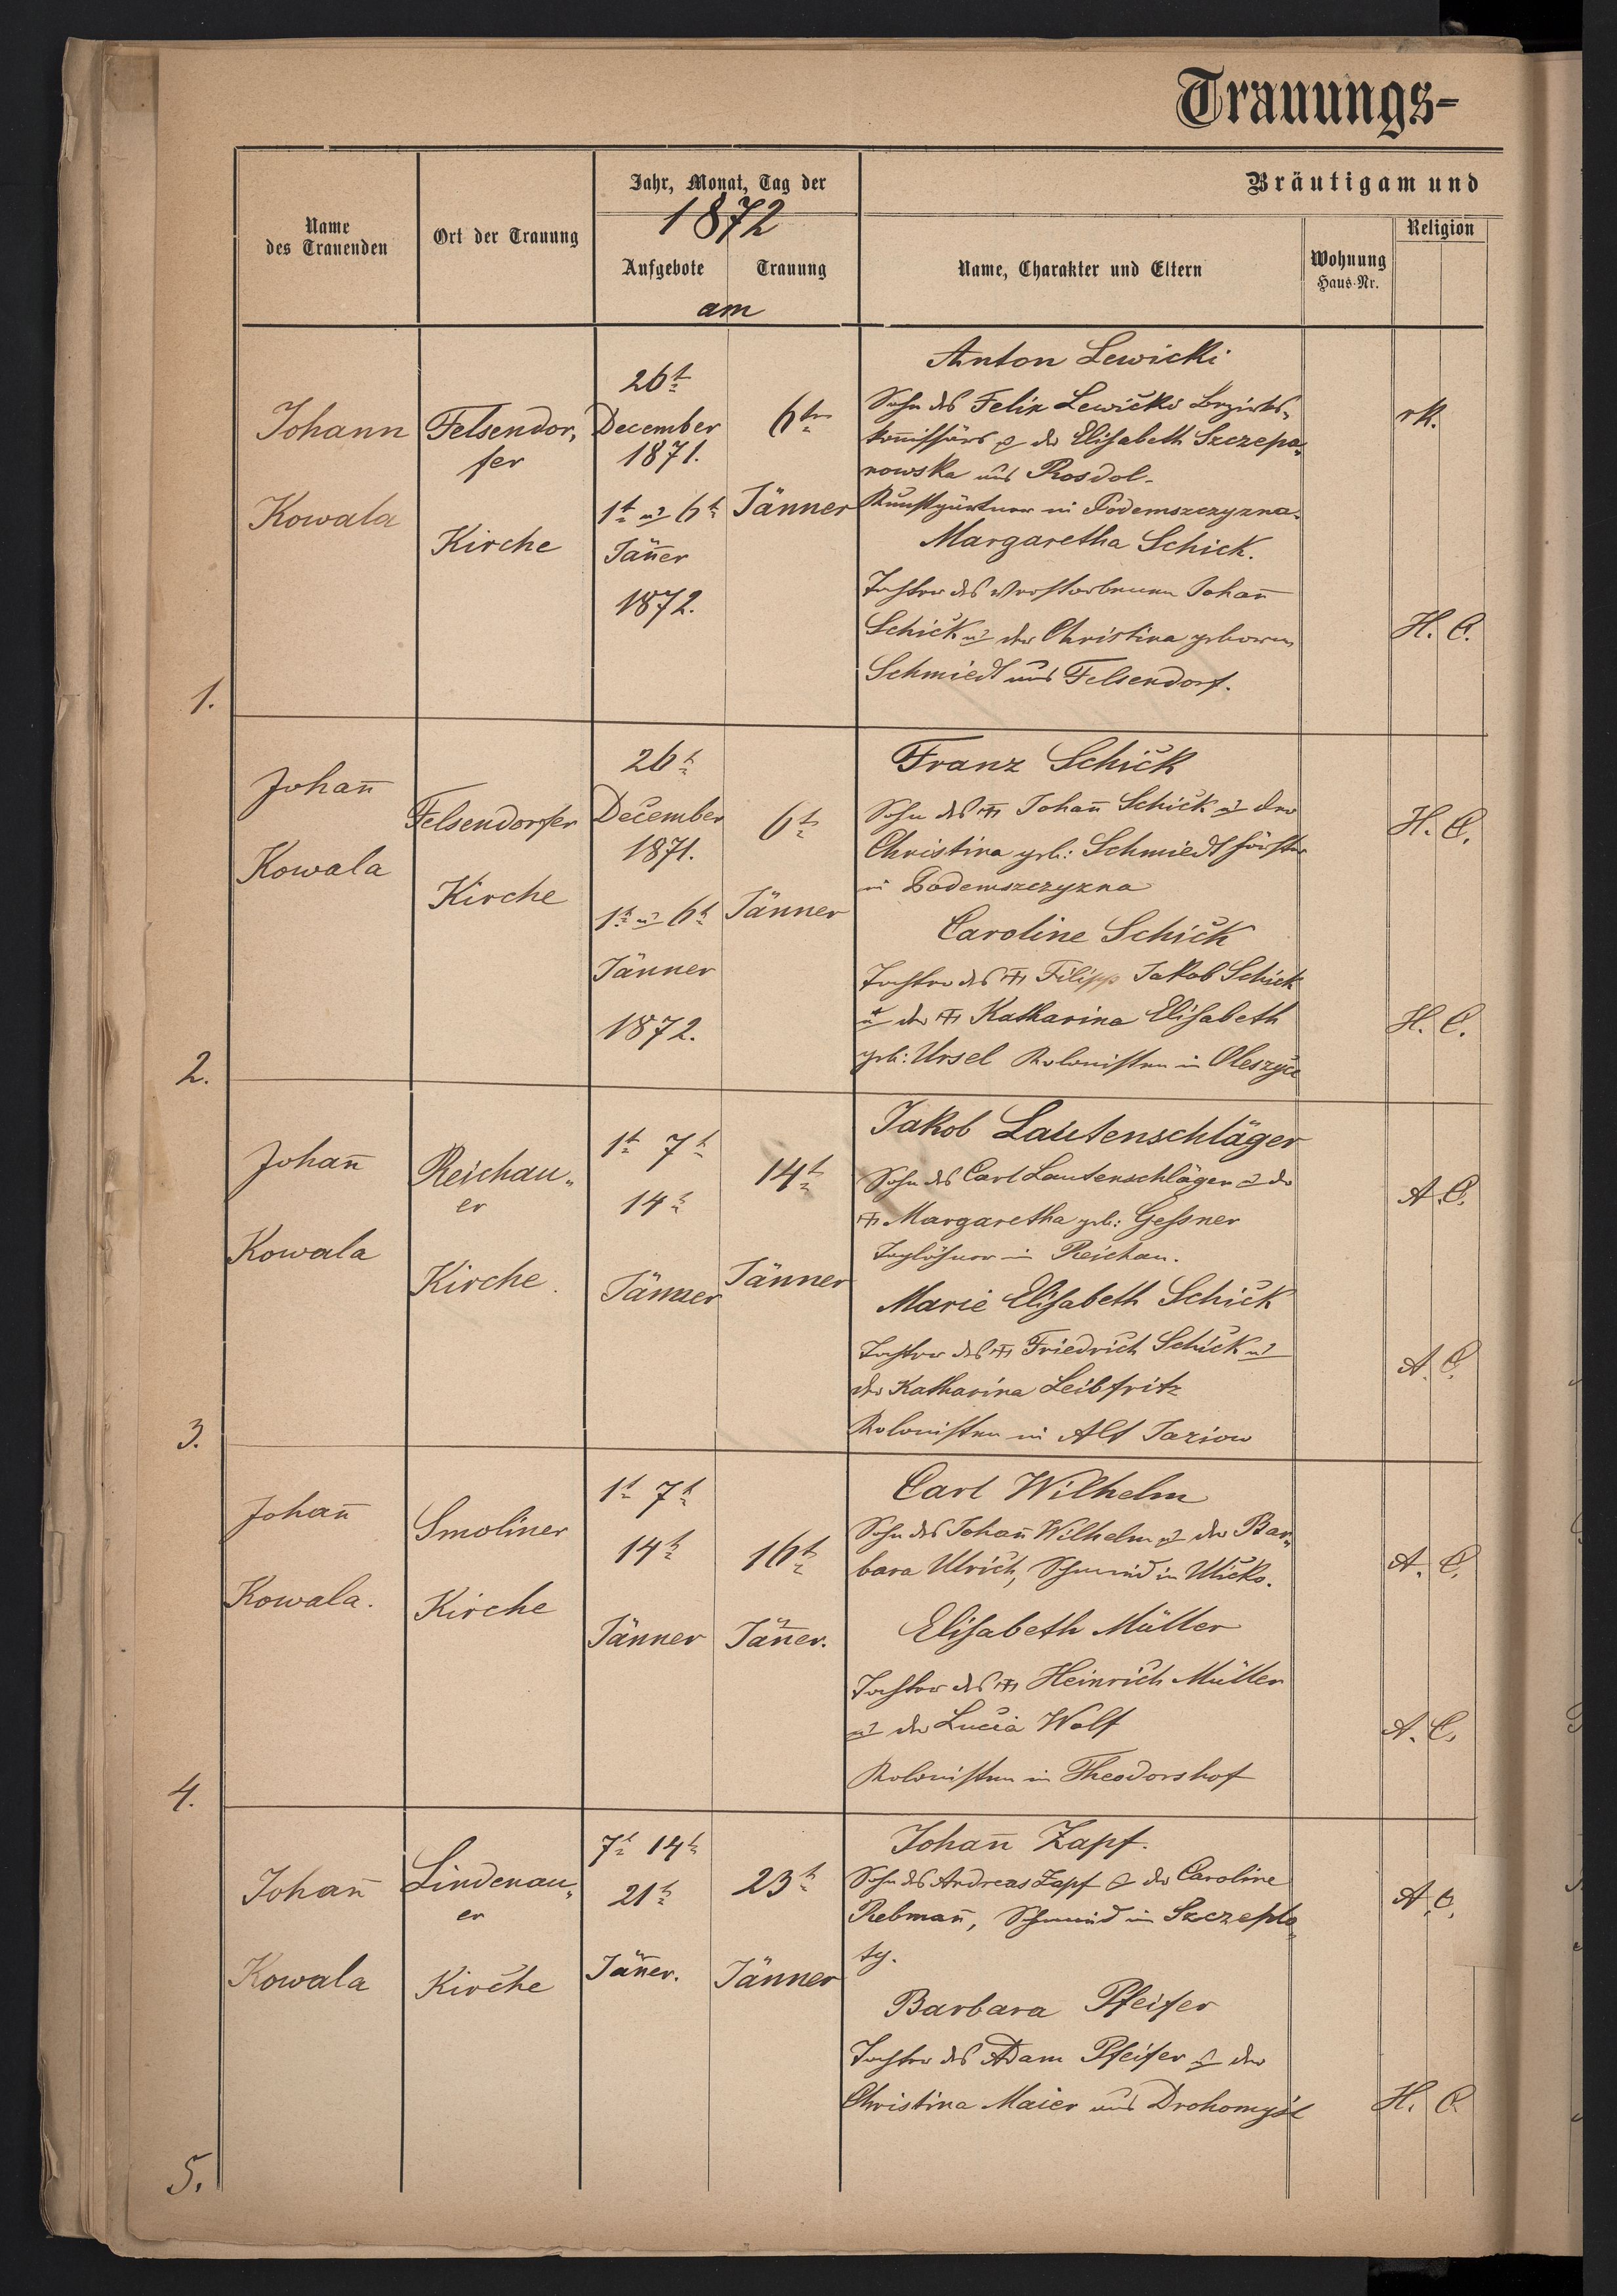 Trauungs-
Name
des Trauenden
Ort der Trauung
Jahr, Monat, Tag der
1872
Aufgebote
Trauung
am
Bräutigam und
Name, Charakter und Eltern
Wohnung
Haus-Nr.
Religion
1.
Johann
Kowala
Felsendor„
fer
Kirche
26t
December
1871.
1t u 6t
Jäner
1872.
6ten
Jänner
Anton Lewicki
Sohn des Felix Lewicki Bezirks„
komissärs & der Elisabeth Szczepa„
nowska aus Rosdol.
Kunstgärtner in Podemszczyzna.
Margaretha Schick.
Tochter des verstorbenen Johan̄
Schick u der Christina geboren
Schmiedt aus Felsendorf.
rk.
H. C.
2.
Johan̄
Kowala
Felsendorfer
Kirche
26t
December
1871.
1t u 6t
Jänner
1872.
6t
Jänner
Franz Schick
Sohn des Johan̄ Schick u der
Christina geb: Schmiedt Förster
in Podemszczyzna
Caroline Schick
Tochter des Filipp Jakob Schick
u der Katharina Elisabeth
geb: Ursel Kolonisten in Oleszyce
H. C.
H. C.
3.
Johan̄
Kowala
Reichau„
er
Kirche.
1t 7t
14t
Jänner
14t
Jänner
Jakob Lautenschläger
Sohn des Carl Lautenschläger & der
Margaretha geb: Gessner
Taglöhner in Reichau.
Marie Elisabeth Schick
Tochter des Friedrich Schick u
der Katharina Leibfritz
Kolonisten in Alt Jaziow
A. C.
A. C.
4.
Johan̄
Kowala.
Smoliner
Kirche
1t 7t
14t
Jänner
16t
Jäner.
Carl Wilhelm
Sohn des Johan̄ Wilhelm & der Bar„
bara Ulrich, Schmied in Ulicko.
Elisabeth Müller
Tochter des Heinrich Müller
u der Lucia Wolf
Kolonisten in Theodorshof
A. C.
A. C.
5.
Johan̄
Kowala
Lindenau„
er
Kirche
7t 14t
21t
Jäner.
23t
Jänner
Johan̄ Zapf.
Sohn des Andreas Zapf & der Caroline
Rebman̄, Schmied in Szczepla„
ty.
Barbara Pfeifer
Tochter des Adam Pfeifer & der
Christina Maier aus Drohomyśl
A. C.
H. C.